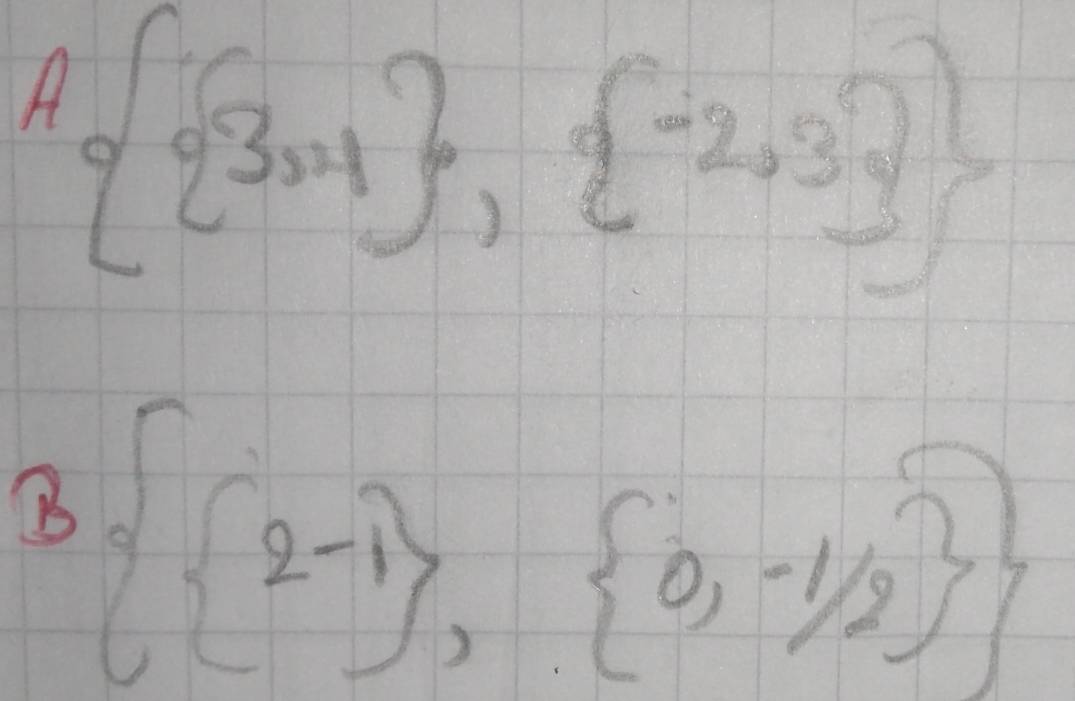 A {{3,4}, {-2,3}}
B {{2-1}, {0, -1/2}}